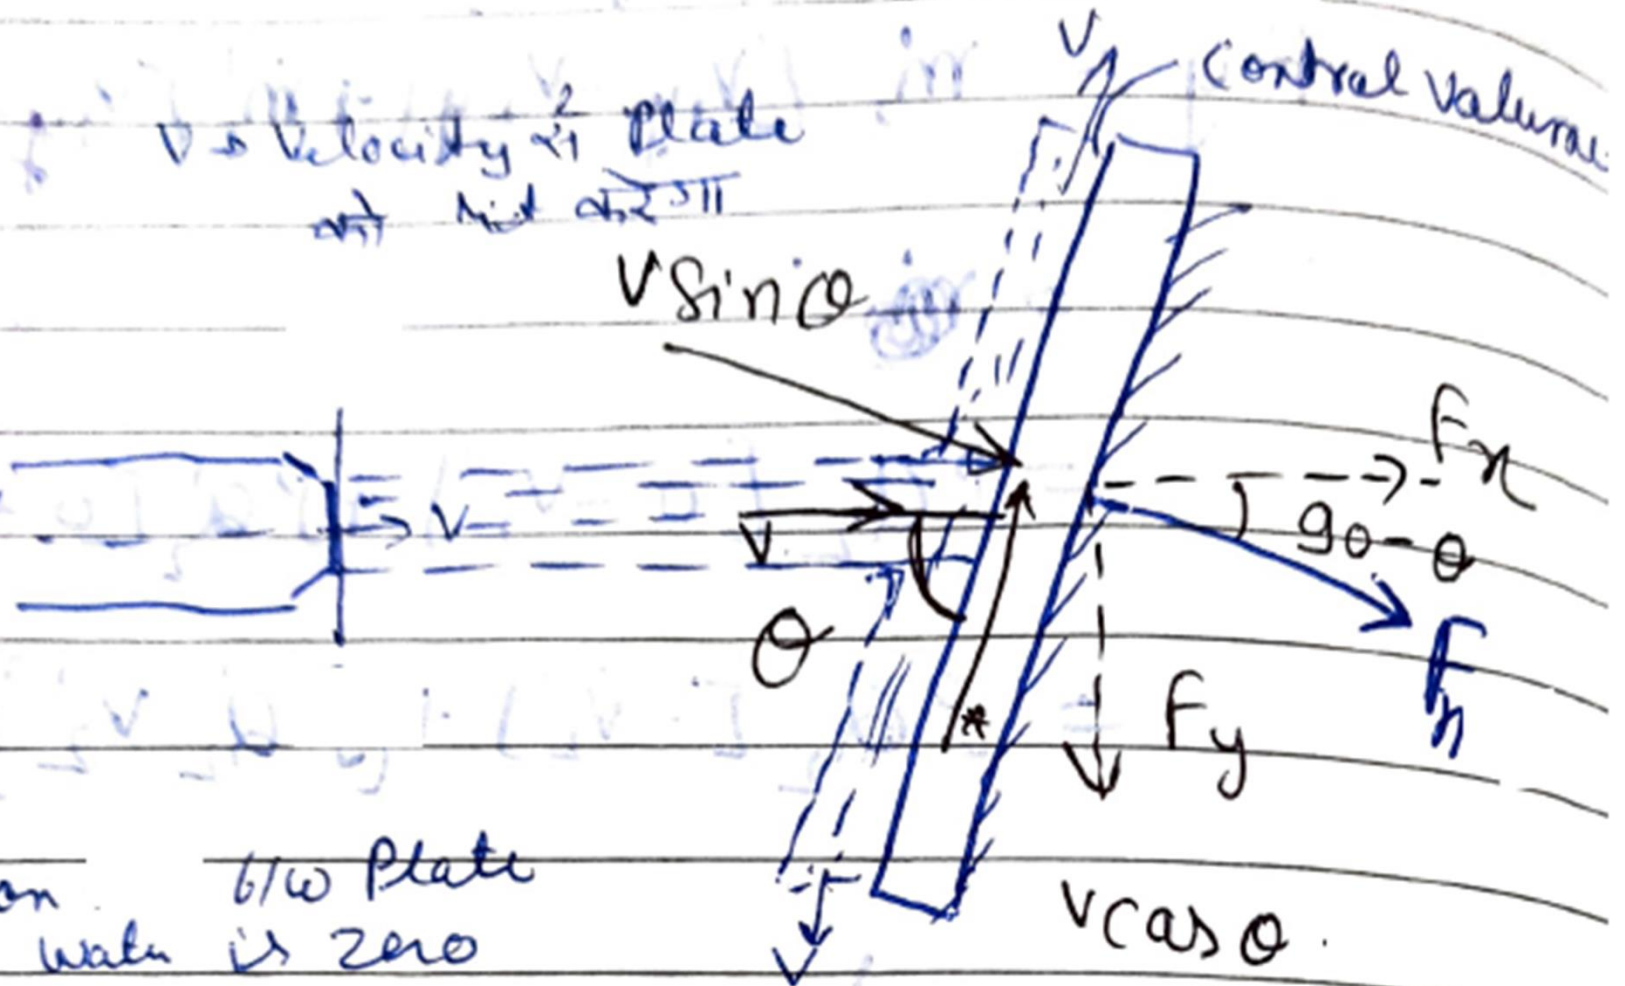 V
Control Valume
V → Velocity से Plate
को hit करेगा
V Sinθ
Fx
V
V
90-θ
θ
Fn
Fy
*
on b/w Plate
Vcasθ.
water is zero
V